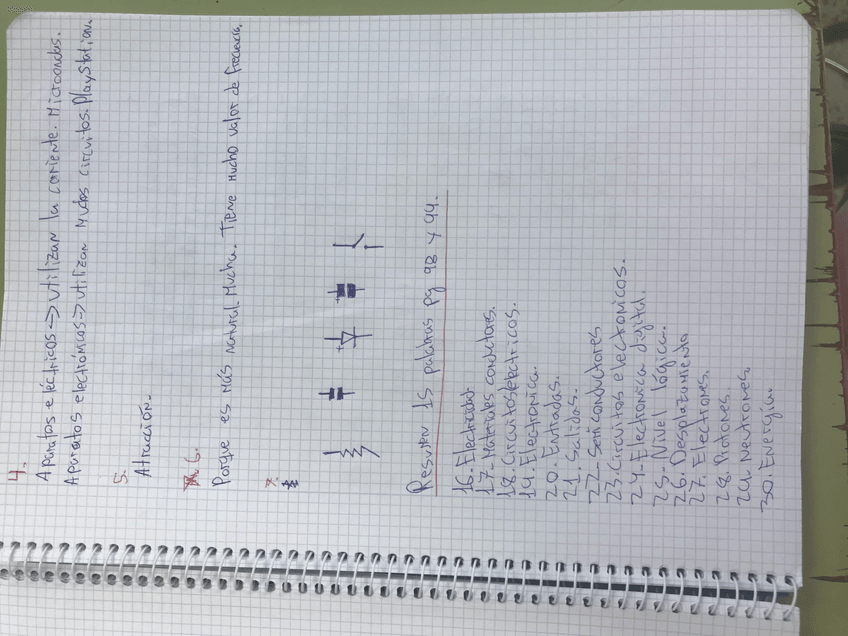 4.
Aparatos eléctricos => utilizan la corriente. Microondas.
Aparatos electrónicos => utilizan muchos circuitos. PlayStation.
5.
Atracción.
6.
Porque es más natural. Mucha. Tiene mucho valor de frecuencia.
7.
Resumen 15 palabras pg 98 y 99.
16. Electricidad
17- Materiales conductores.
18. Circuitos eléctricos.
19. Electronica.
20. Entradas.
21. Salidas.
22- Semiconductores
23. Circuitos electronicos.
24- Electronica digital.
25- Nivel lógico.
26. Desplazamiento
27. Electrones.
28. Protones.
29. Neutrones
30. Energía.